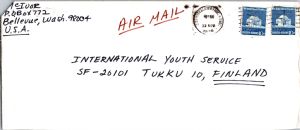 P.O BOX 772
Bellevue, Wash. 98004
U.S.A.
AIR MAIL
INTERNATIONAL YOUTH SERVICE
SF-20101 TUKKU 10, FINLAND